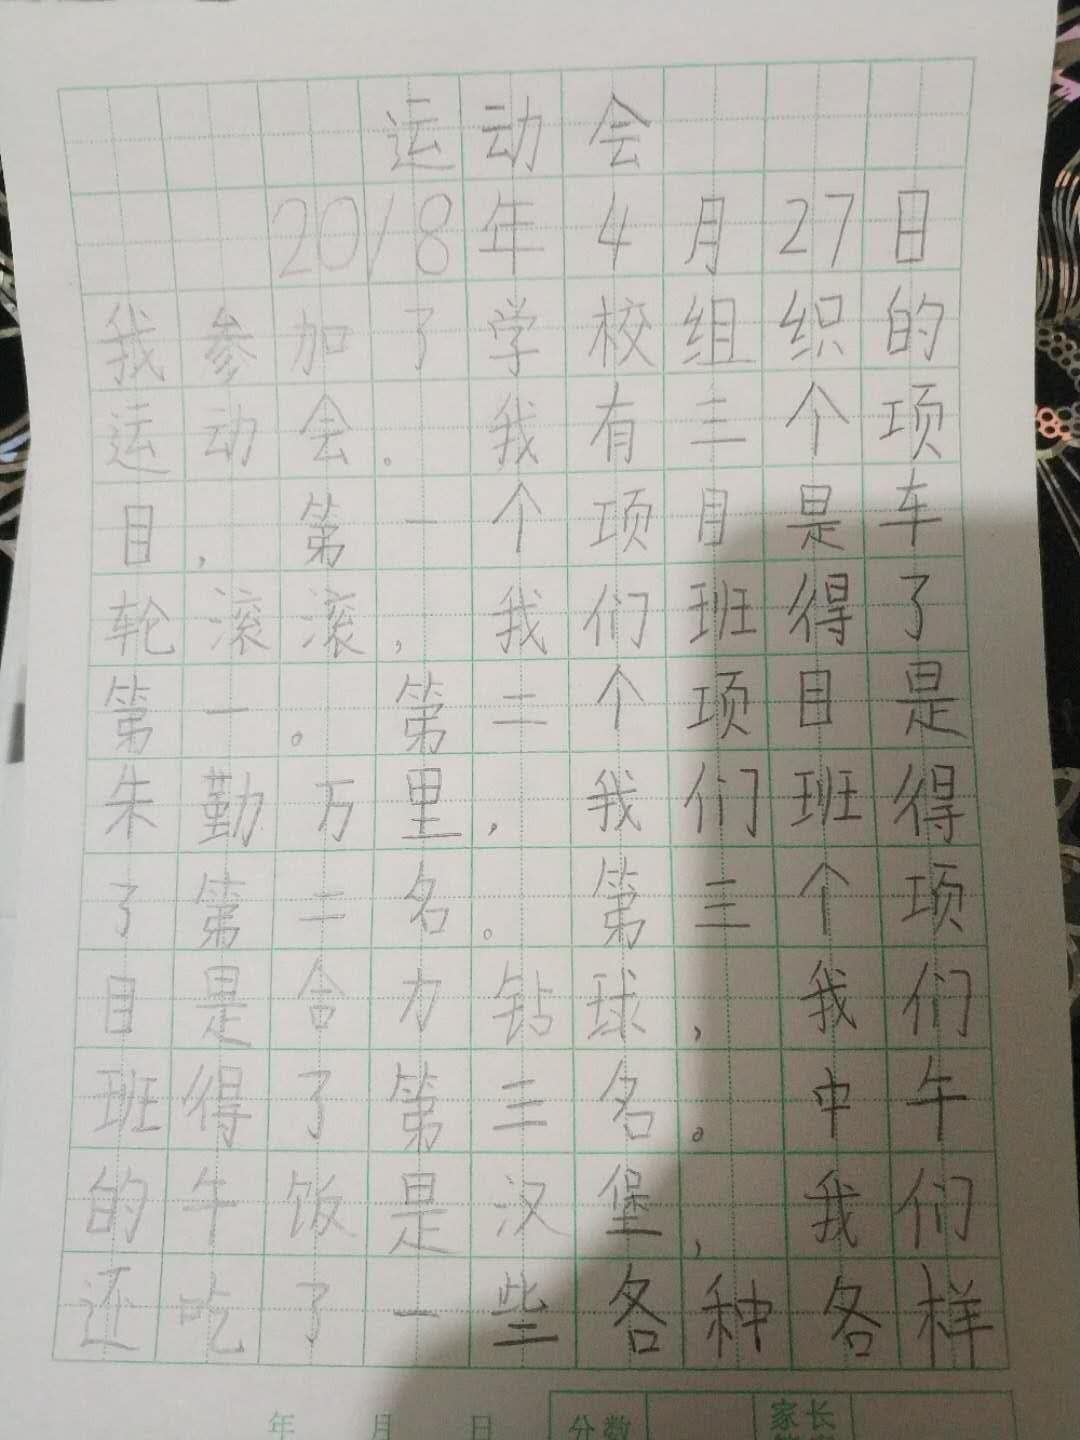 运动会
2018年4月27日
我参加了学校组织的
运动会。我有三个项
目，第一个项目是车
轮滚滚，我们班得了
第一。第二个项目是
朱勤万里，我们班得
了第二名。第三个项
目是合力钻球，我们
班得了第三名。中午
的午饭是汉堡，我们
还吃了一些各种各样
年 月 日 分数 家长